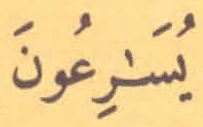 يُسَٰرِعُونَ